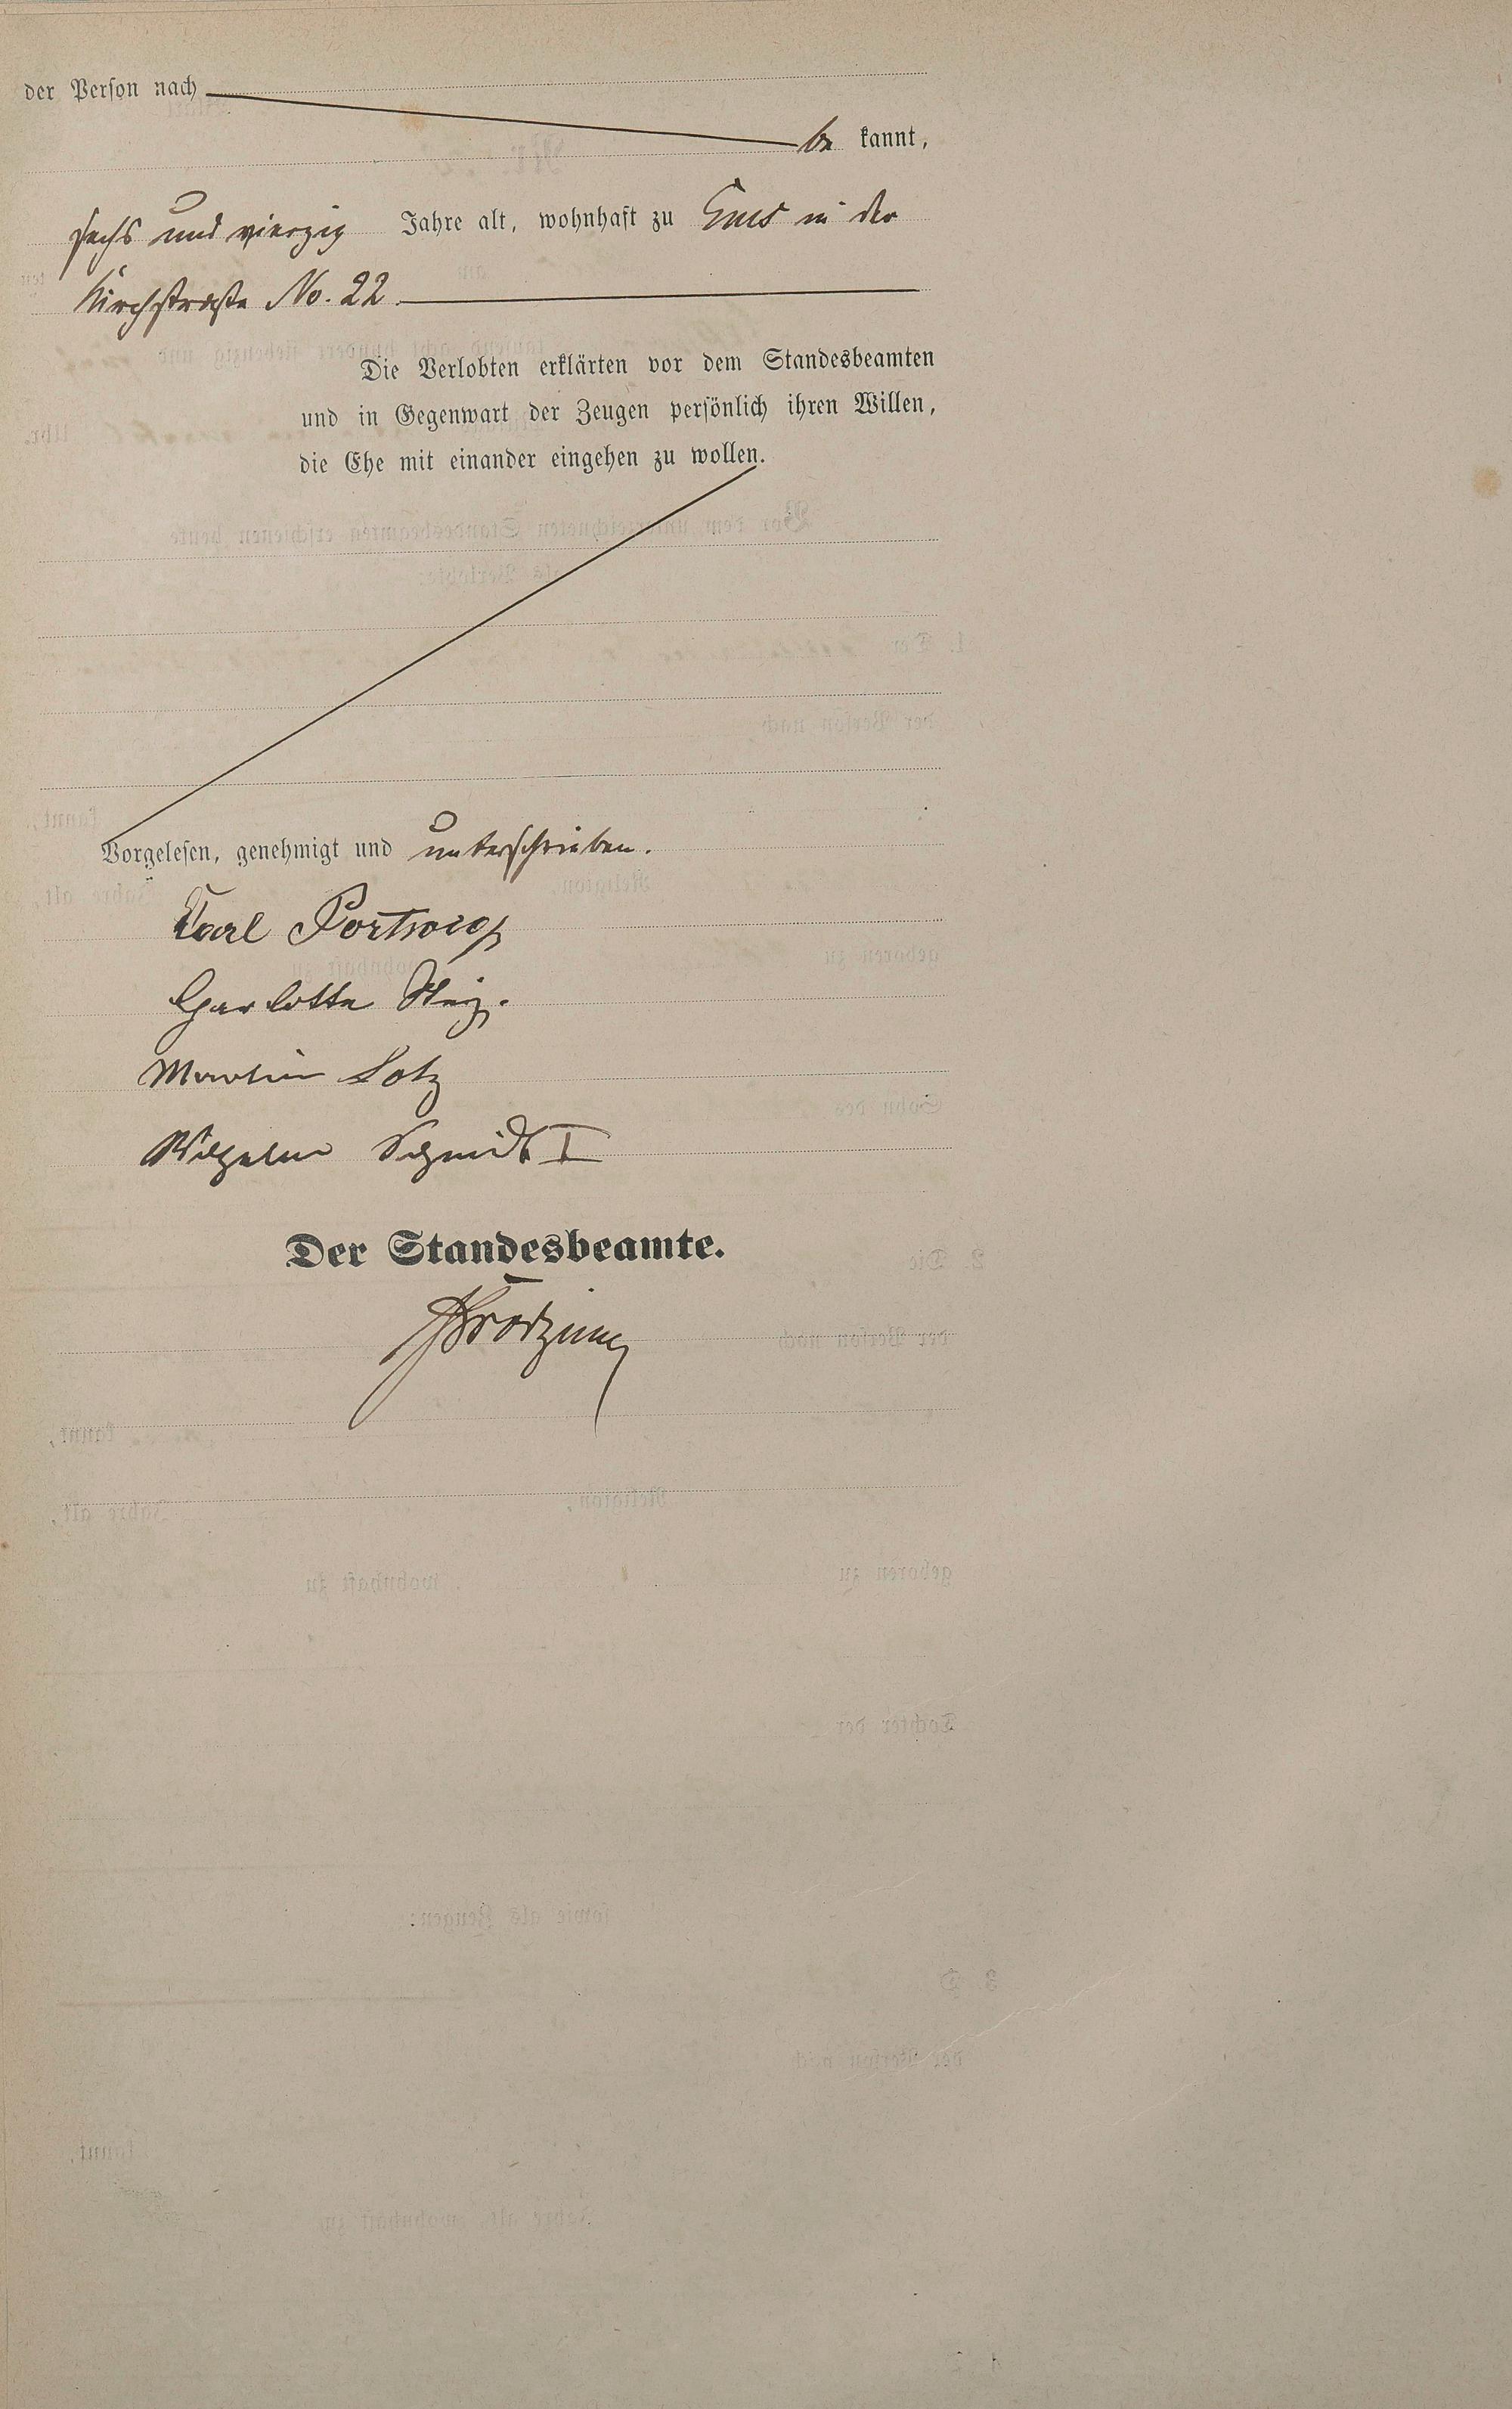 der Person nach
be kannt,
sechs und vierzig Jahre alt, wohnhaft zu Ems in der
Kirchstraße No. 22
Die Verlobten erklärten vor dem Standesbeamten
und in Gegenwart der Zeugen persönlich ihren Willen,
die Ehe mit einander eingehen zu wollen.
Vorgelesen, genehmigt und unterschrieben.
Karl
Charlotte
Martin Lotz
Wilhelm Schmidt I
Der Standesbeamte.